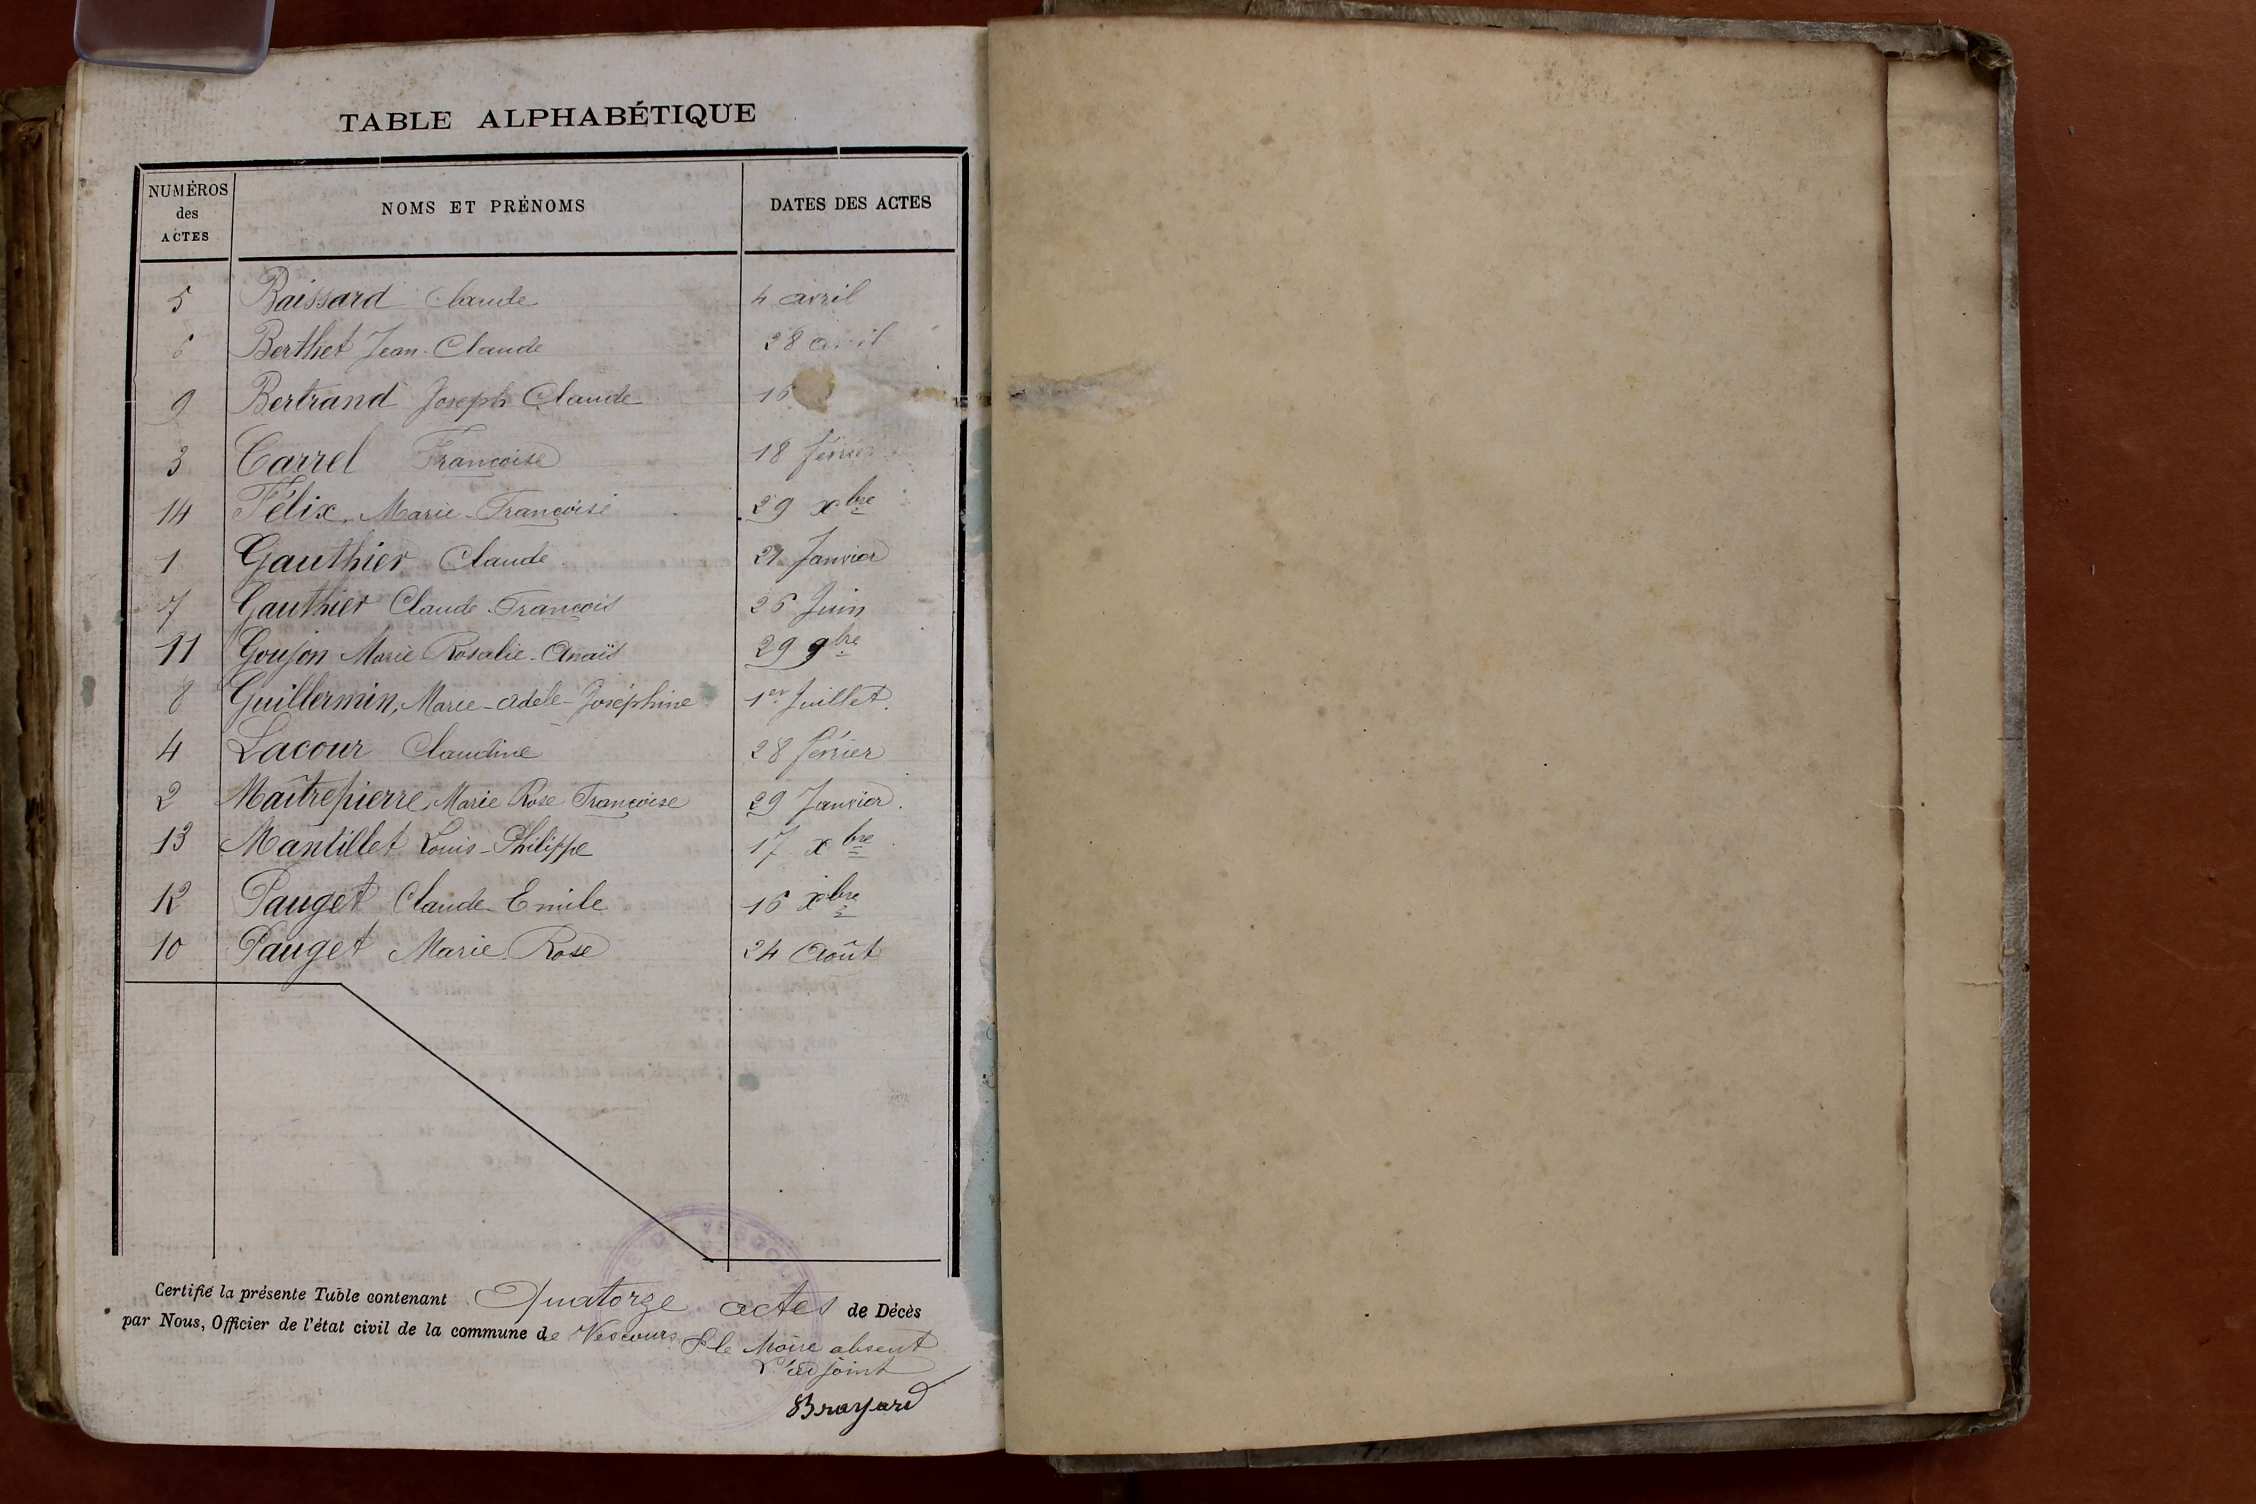 TABLE ALPHABÉTIQUE
NUMÉROS des ACTES NOMS ET PRÉNOMS DATES DES ACTES
5 Boissard Claude 4 avril
6 Berthet Jean-Claude 28 avril
9 Bertrand Joseph Claude 16
3 Carrel Françoise 18 février
14 Félix, Marie-Françoise 29 xbre
1 Gauthier Claude 21 Janvier
7 Gauthier Claude-François 26 Juin
11 Goujon Marie Rosalie-Anaïs 29 9bre
8 Guillermin, Marie-Adèle-Joséphine 1er Juillet.
4 Lacour Claudine 28 février
2 Maîtrepierre, Marie Rose Françoise 29 Janvier.
13 Mantillet Louis-Philippe 17 xbre
12 Pauget Claude-Emile 16 xbre
10 Pauget Marie Rose 24 Août
Certifié la présente Table contenant Quatorze actes de Décès
par Nous, Officier de l'état civil de la commune de Vescours. P. le Maire absent
L'adjoint
Brayard